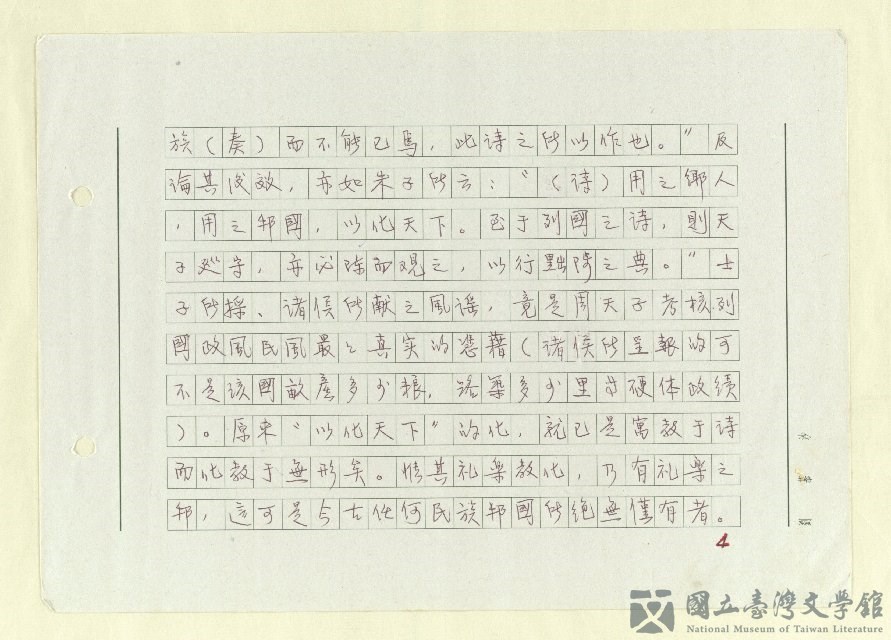 族(奏)而不能已焉，此诗之所以作也。"反
論其後效，亦如朱子所云："(诗)用之鄉人
，用之邦國，以化天下。至于列國之诗，則天
子巡守，亦必陈而观之，以行黜陟之典。"士
子所採、诸侯所献之風谣，竟是周天子考核列
國政風民風最最真实的憑藉(诸侯所呈報的可
不是该國畝產多少粮，路築多少里等硬体政績
)。原来"以化天下"的化，就已是寓教于诗
而化教于無形矣。惟其礼樂教化，乃有礼樂之
邦，這可是今古任何民族邦國所绝無僅有者。
4
國立臺灣文學館
National Museum of Taiwan Literature